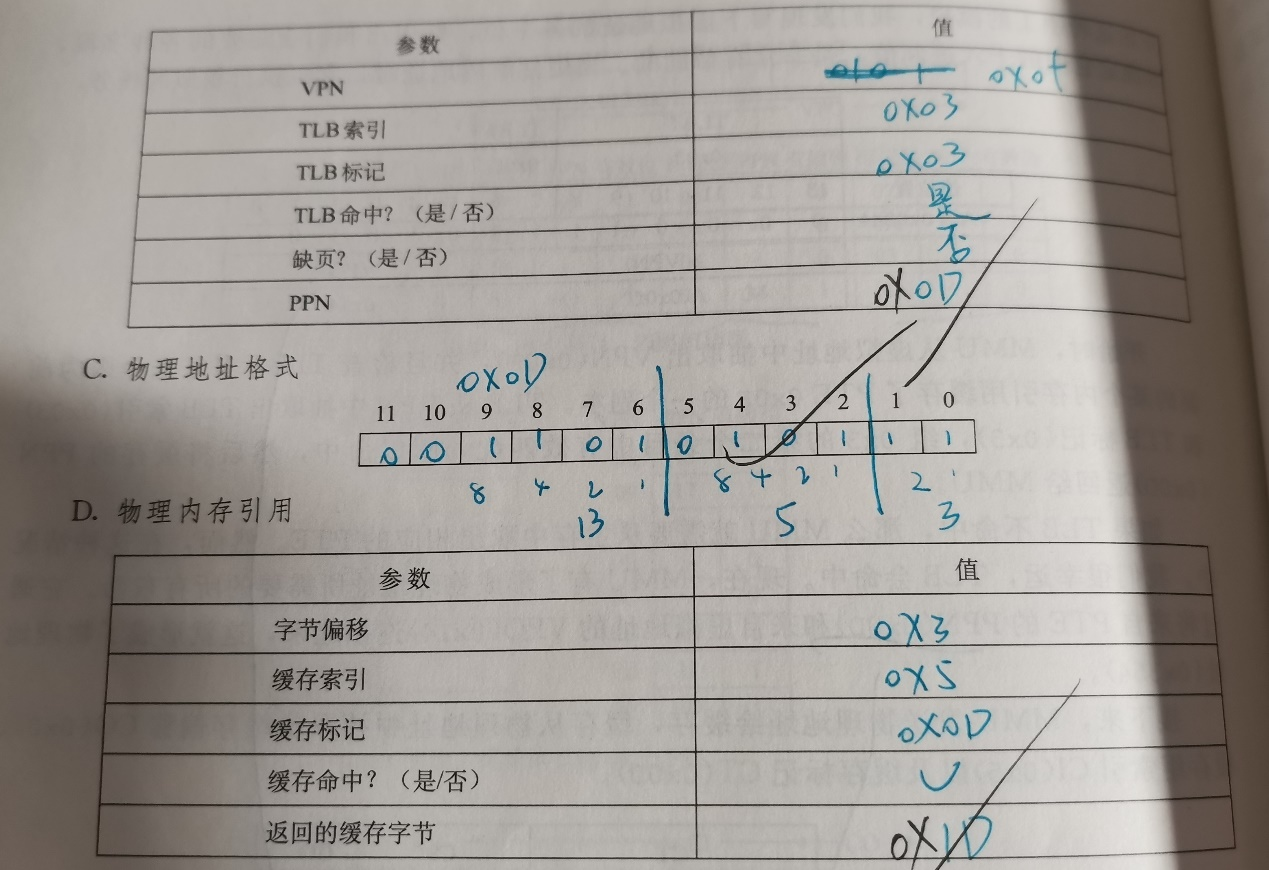 参数 值
VPN 0x0f
TLB索引 0x03
TLB标记 0x03
TLB命中?(是/否) 是
缺页?(是/否) 否
PPN 0x0D
C. 物理地址格式
0x0D
11 10 9 8 7 6 5 4 3 2 1 0
0 0 1 1 0 1 0 1 0 1 1 1
8 4 2 1 8 4 2 1 2 1
13 5 3
D. 物理内存引用
参数 值
字节偏移 0x3
缓存索引 0x5
缓存标记 0x0D
缓存命中?(是/否)
返回的缓存字节 0x1D